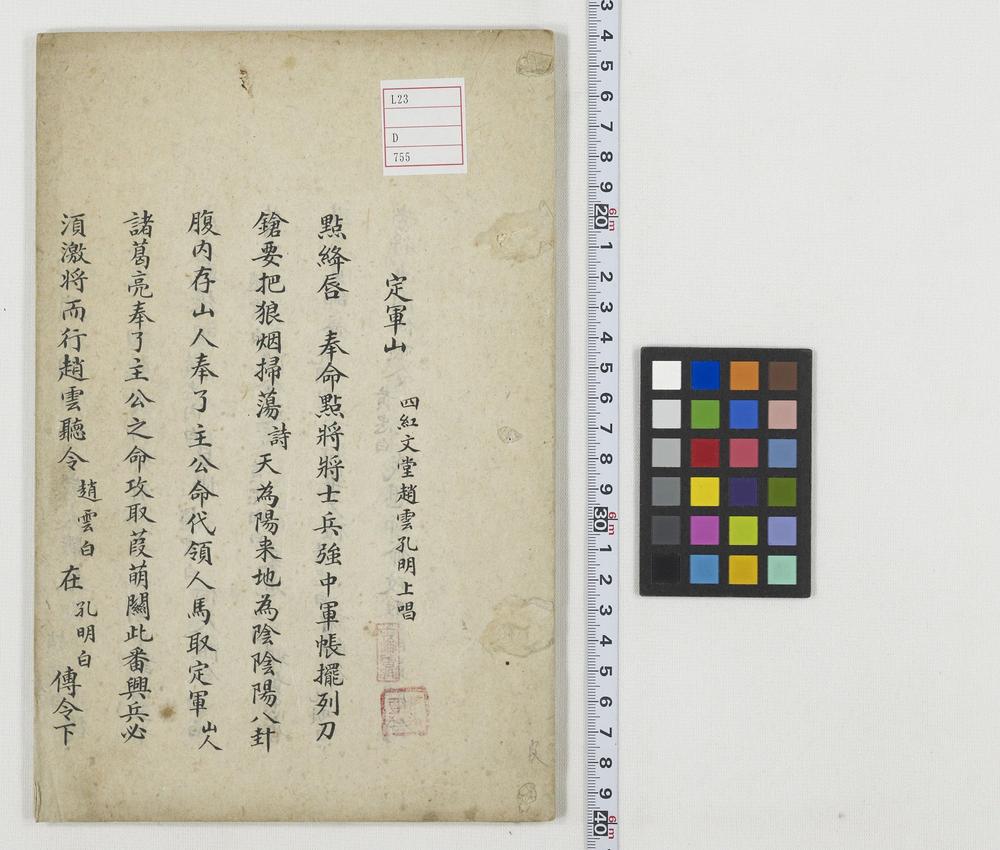 L23
D
755
定軍山 四紅文堂趙雲孔明上唱
點絳唇 奉命點將將士兵強中軍帳擺列刀
鎗要把狼烟掃蕩詩天為陽来地為陰陰陽八卦
腹内存山人奉了主公命代領人馬取定軍山人
諸葛亮奉了主公之命攻取葭萌關此番興兵必
須激将而行趙雲聽令趙雲白在孔明白傳令下
3 4 5 6 7 8 9 20 1 2 3 4 5 6 7 8 9 30 1 2 3 4 5 6 7 8 9 40